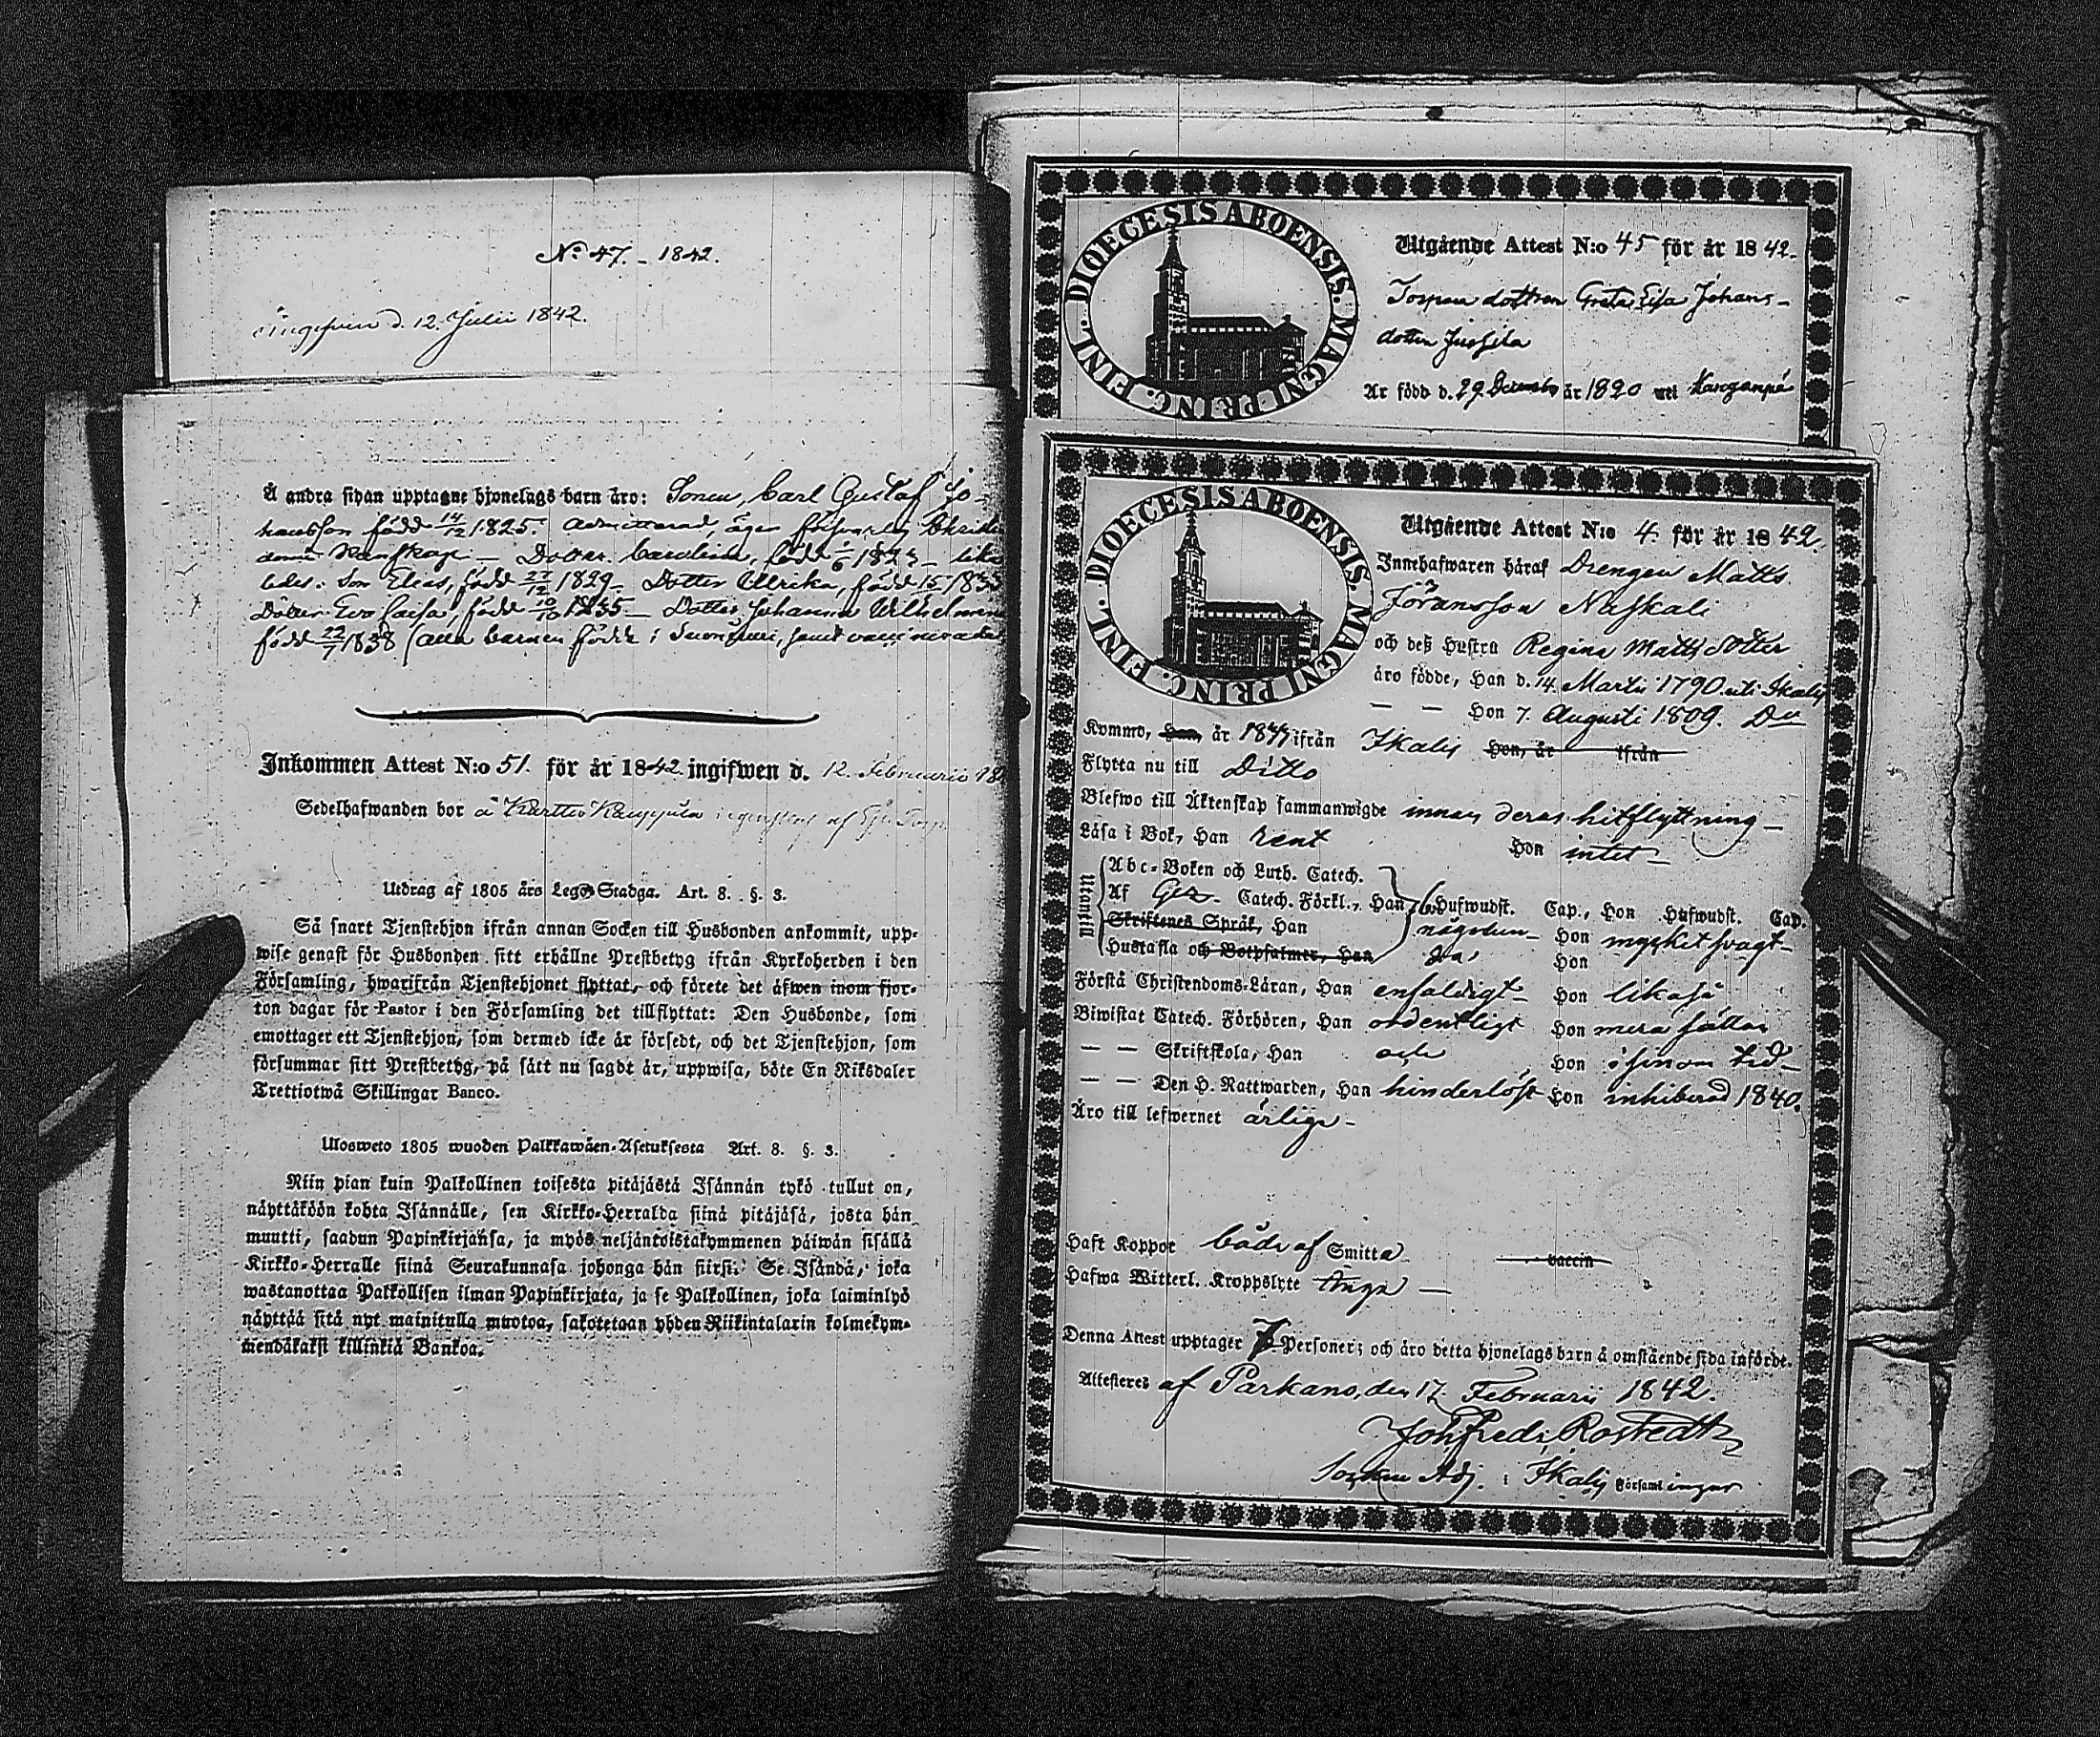 No 47. - 1842.
d. 12. Julii 1842.
Å andra sidan upptagne hjonelags barn äro: Sonen, Carl Gustaf Jo-
hansson född 14/12 1825. admitterad, äger
kunskap — Dotter Carolina, född 1823 - lika
ledes. Son Elias, född 27/12 1829 - Dotter Ulrika, född
Dotter Eva Caisa, född 10/10 1835 — Dotter Johanna Wilhelmina
född 22/7 1838 (alla barnen födde i
Inkommen Attest N:o 51. för år 1842. ingifwen d. 12. Februarii
Sedelhafwanden bor å
Utdrag af 1805 års Lego-Stadga. Art. 8. §. 3.
Så snart Tjenstehjon ifrån annan Socken till Husbonden ankommit, upp-
wise genast för Husbonden sitt erhållne Prestbetyg ifrån Kyrkoherden i den
Församling, hwarifrån Tjenstehjonet flyttat, och förete det äfwen inom fjor-
ton dagar för Pastor i den Församling det tillflyttat: Den Husbonde, som
emottager ett Tjenstehjon, som dermed icke är försedt, och det Tjenstehjon, som
försummar sitt Prestbetyg, på sätt nu sagdt är, uppwisa, böte En Riksdaler
Trettiotwå Skillingar Banco.
Ulosweto 1805 wuoden Palkkawäen-Asetuksesta Art. 8. §. 3.
Niin pian kuin Palkollinen toisesta pitäjästä Isännän tykö tullut on,
näyttäköön kohta Isännälle, sen Kirkko-Herralda siinä pitäjäsä, josta hän
muutti, saadun Papinkirjansa, ja myös neljäntoistakymmenen päiwän sisällä
Kirkko-Herralle siinä Seurakunnasa johonga hän siirsi: Se Isändä, joka
wastanottaa Palkollisen ilman Papinkirjata, ja se Palkollinen, joka laiminlyö
näyttää sitä nyt mainitulla muotoa, sakotetaan yhden Riikintalarin kolmekym-
mendäkaksi killinkiä Bankoa.
DIOECESIS ABOENSIS. MAGNI PRINC. FINL.
Utgående Attest N:o 45 för år 1842.
dottren Greta Johans-
dotter
Är född d. 29 December år 1820 uti Kanganpä
DIOECESIS ABOENSIS. MAGNI PRINC. FINL.
Utgående Attest N:o 4. för år 1842.
Innehafwaren häraf Drengen Matts
Jöransson Naskali
och deß Hustru Regina Matts dotter
äro födde, Han d. 14 Martii 1790. uti Ikalis
— — Hon 7. Augusti 1809. Do
Kommo, Han, år ifrån Ikalis Hon, år ifrån
Flytta nu till Ditto
Blefwo till Äktenskap sammanwigde innan deras hitflyttning —
Läsa i Bok, Han rent Hon intet —
Utantill
Abc-Boken och Luth. Catech.
Af Gez. Catech. Förkl., Han 6 Hufwudst. Cap., Hon Hufwudst. Cap.
Skriftenes Språk, Han någorlun— Hon mycket svagt—
Hustafla och Botpsalmer, Han da Hon
Förstå Christendoms-Läran, Han enfaldigt— Hon likaså
Biwistat Catech. Förhören, Han ordentligt Hon mera sällan
— — Skriftskola, Han och Hon i sinom tid—
— — Den H. Nattwarden, Han hinderlöst Hon inhiberad 1840.
Äro till lefwernet ärliga —
Haft Koppor både af Smitta vaccin
Hafwa Witterl. Kroppslyte Inga —
Denna Attest upptager 7 Personer; och äro detta hjonelags barn å omstående sida införde.
Attesteres af Parkano, den 17. Februarii 1842.
Joh Fredr Rostedt
Socken Adj. i Ikalis Församlingar